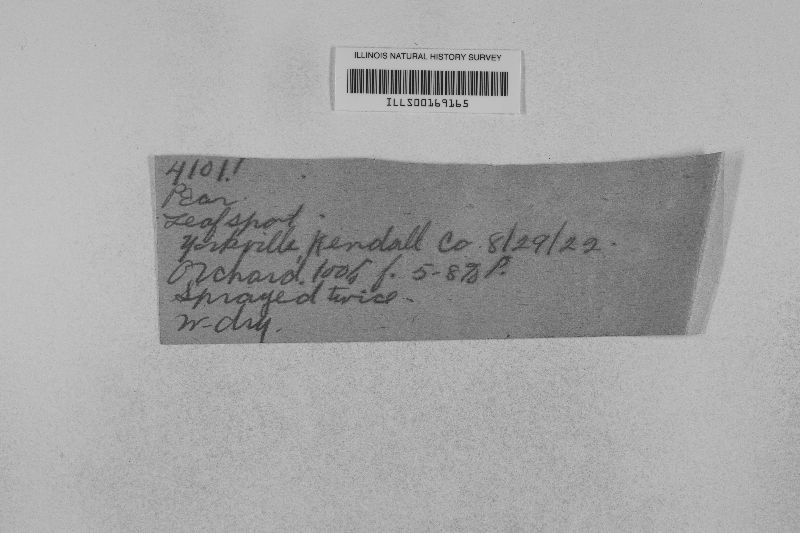 ILLINOIS NATURAL HISTORY SURVEY
ILLS00169165
41011
Pear.
Leaf spot.
Yorkville, Kendall Co. 8/29/22.
Orchard. 100% f. 5-8% P.
Sprayed twice.
W-dry.